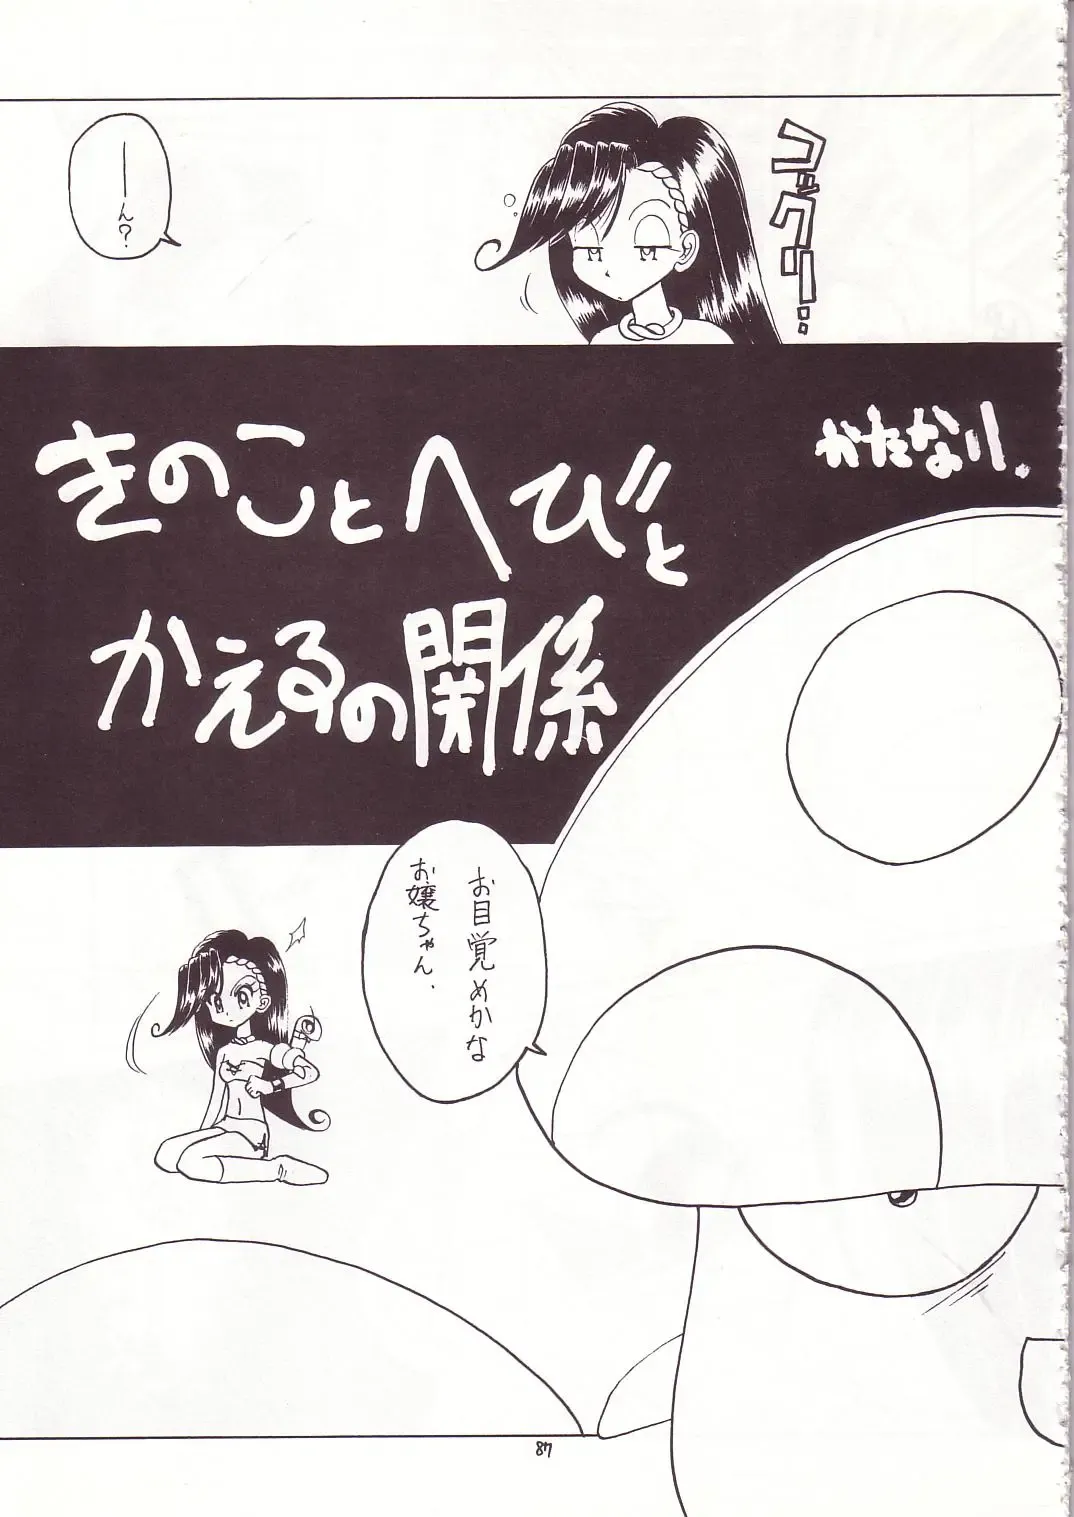 コックリ…
ーーん?
かたなリ.
きのことへびと
かえるの関係
お目覚めかな
お嬢ちゃん.
87